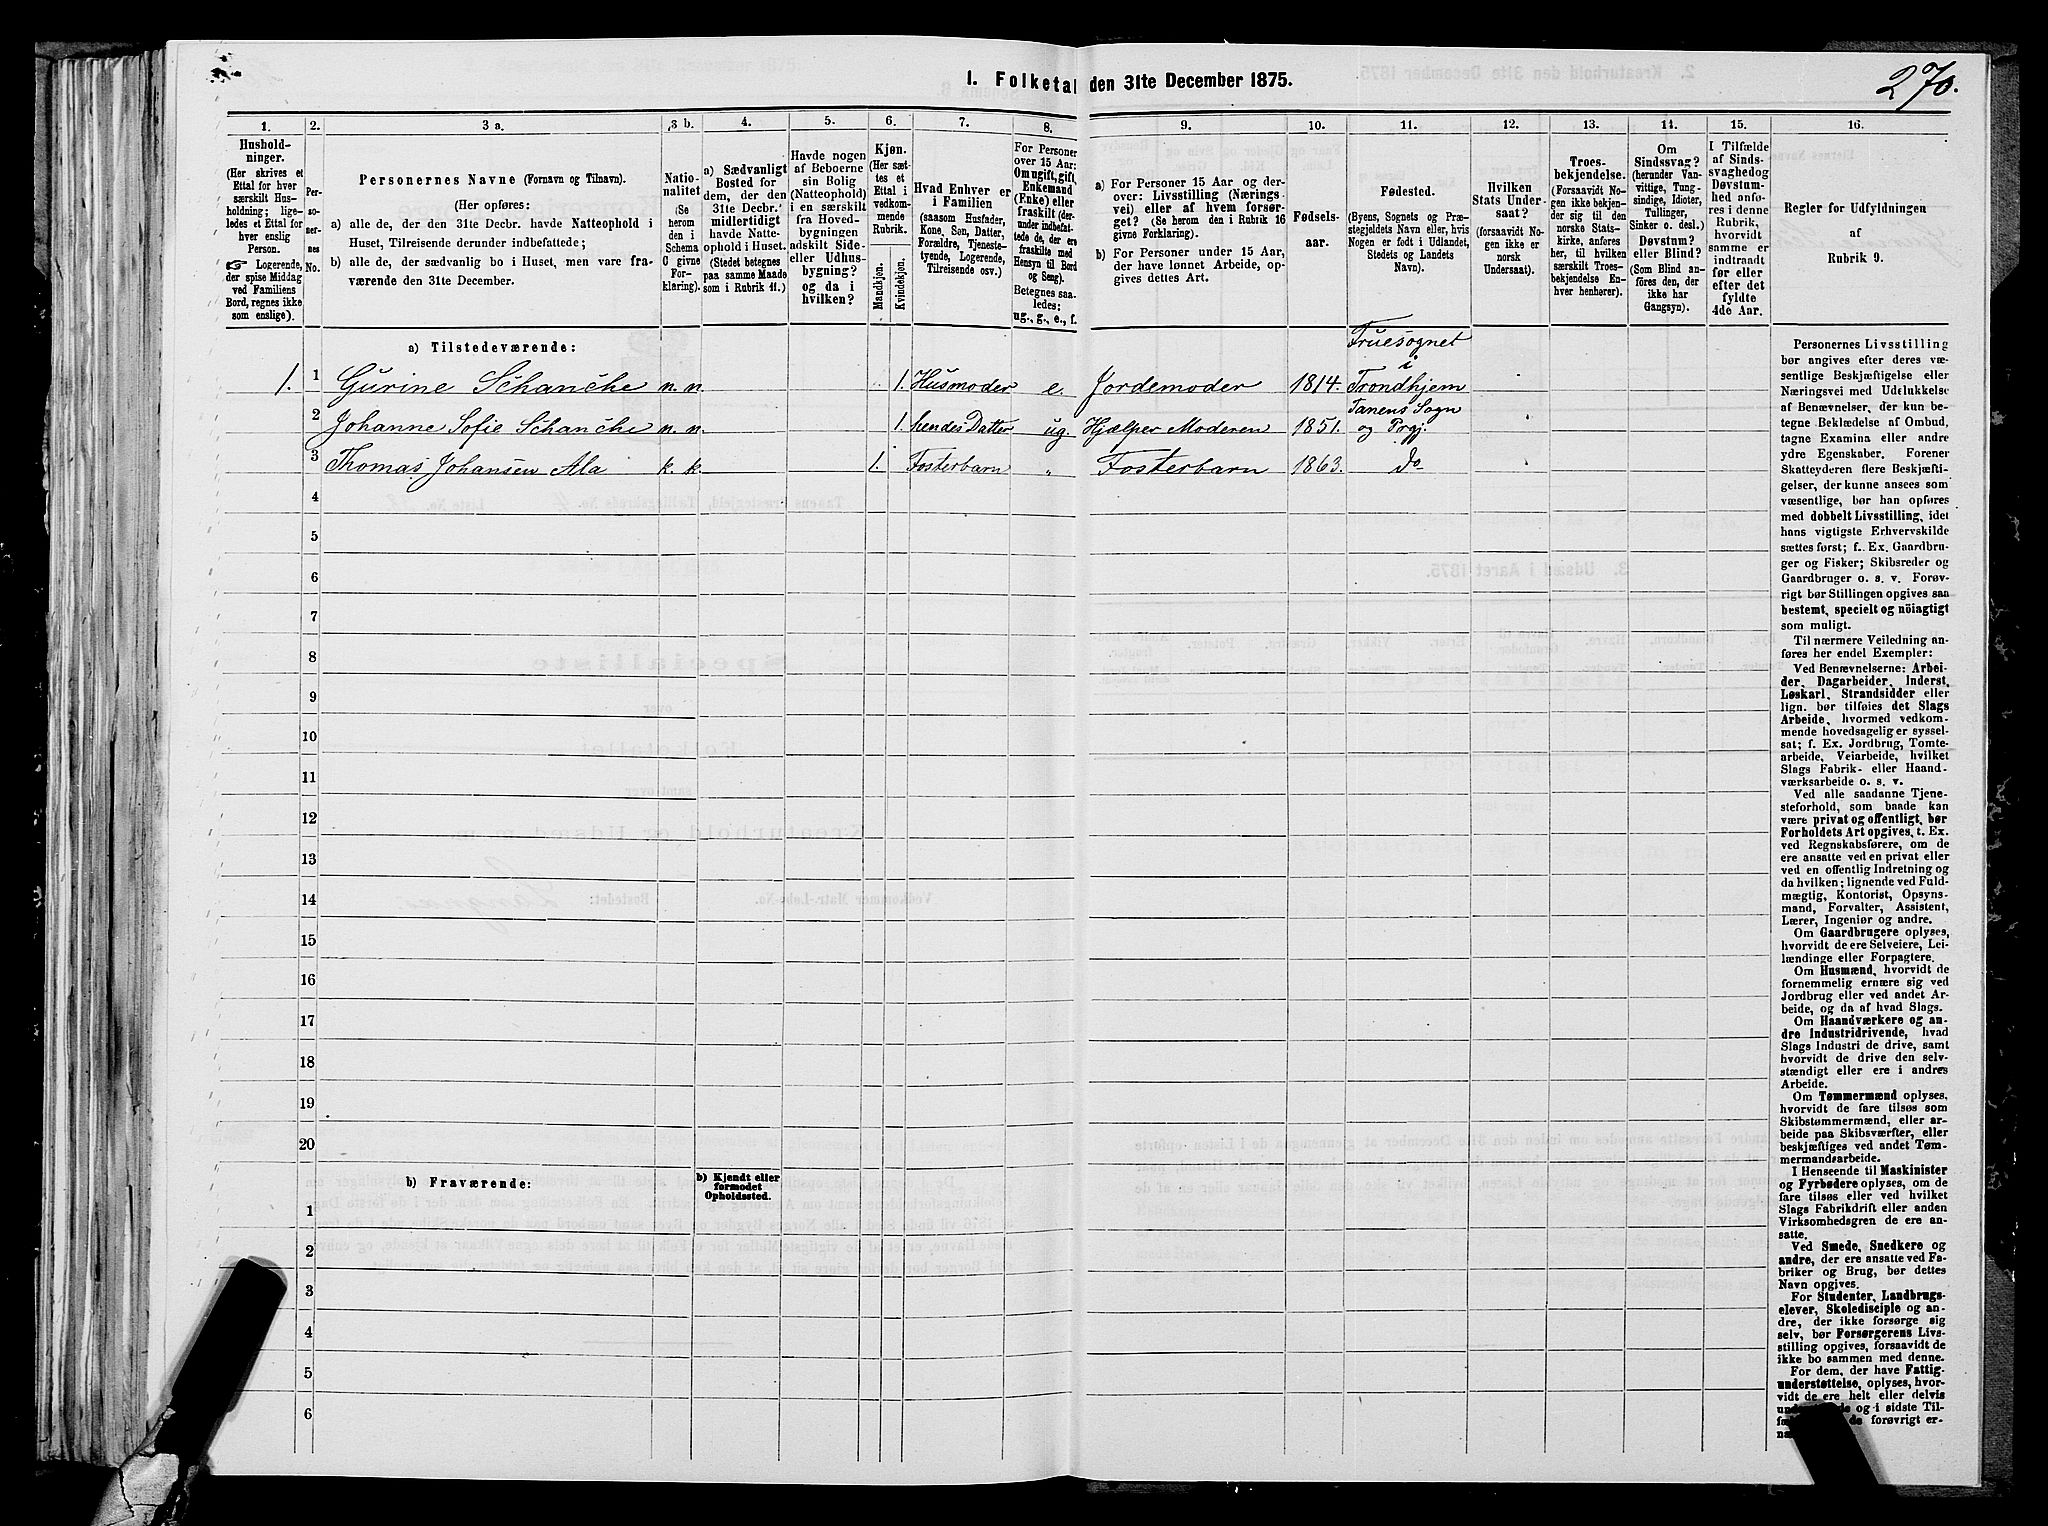 1. Folketal den 31te December 1875.
270.
1. 2. 3 a. 3 b. 4. 5. 6. 7. 8. 9. 10. 11. 12. 13. 14. 15. 16.
Hushold-
ninger.
(Her skrives et
Ettal for hver
særskilt Hus-
holdning; lige-
ledes et Ettal for
hver enslig
Person.
☞ Logerende,
der spise Middag
ved Familiens
Bord, regnes ikke
som enslige).
Per-
so-
ner-
nes
No.
Personernes Navne (Fornavn og Tilnavn).
(Her opføres:
a) alle de, der den 31te Decbr. havde Natteophold i
Huset, Tilreisende derunder indbefattede;
b) alle de, der sædvanlig bo i Huset, men vare fra-
værende den 31te December.
Natio-
nalitet
(Se
herom
den i
Schema
O givne
For-
klaring).
a) Sædvanligt
Bosted for
dem, der den
31te Decbr.
midlertidigt
havde Natte-
ophold i Huset.
(Stedet betegnes
paa samme Maade
som i Rubrik 11.)
Havde nogen
af Beboerne
sin Bolig
(Natteophold)
i en særskilt
fra Hoved-
bygningen
adskilt Side-
eller Udhus-
bygning?
og da i
hvilken?
Kjøn.
(Her sæt-
tes et
Ettal i
vedkom-
mende
Rubrik.
Mandkjøn.
Kvindekjøn.
Hvad Enhver er
i Familien
(saasom Husfader,
Kone, Søn, Datter,
Forældre, Tjeneste-
tyende, Logerende,
Tilreisende osv.)
For Personer
over 15 Aar:
Om ugift, gift,
Enkemand
(Enke) eller
fraskilt (der-
under indbefat-
tede de, der ere
fraskilte med
Hensyn til Bord
og Seng).
Betegnes saa-
ledes:
ug., g., e., f.
a) For Personer 15 Aar og der-
over: Livsstilling (Nærings-
vei) eller af hvem forsør-
get? (Se herom den i Rubrik 16
givne Forklaring).
b) For Personer under 15 Aar,
der have lønnet Arbeide, op-
gives dettes Art.
Fødsels-
aar.
Fødested.
(Byens, Sognets og Præ-
stegjeldets Navn eller, hvis
Nogen er født i Udlandet,
Stedets og Landets
Navn).
Hvilken
Stats Under-
saat?
(forsaavidt No-
gen ikke er
norsk
Undersaat).
Troes-
bekjendelse.
(Forsaavidt No-
gen ikke bekjen-
der sig til den
norske Stats-
kirke, anføres
her, til hvilken
særskilt Troes-
bekjendelse En-
hver henhører).
Om
Sindssvag?
(herunder Van-
vittige, Tung-
sindige, Idioter,
Tullinger,
Sinker o. desl.)
Døvstum?
eller Blind?
(Som Blind an-
føres den, der
ikke har
Gangsyn).
I Tilfælde
af Sinds-
svaghed og
Døvstum-
hed anfø-
res i denne
Rubrik,
hvorvidt
samme er
indtraadt
før eller
efter det
fyldte
4de Aar.
Regler for Udfyldningen
af
Rubrik 9.
a) Tilstedeværende:
1. 1 Gurine Schanche n. n. 1. Husmoder e. Jordemoder 1814. Fruesognet i Trondhjem
2 Johanne Sofie Schanche n. n. 1. hendes Datter ug. Hjælper Moderen 1851. Tanens Sogn og Prgj.
3 Thomas Johansen Ala k. k. 1. Fosterbarn " Fosterbarn 1863. do
4
5
6
7
8
9
10
11
12
13
14
15
16
17
18
19
20
b) Fraværende:
b) Kjendt eller
formodet
Opholdssted.
1
2
3
4
5
6
Personernes Livsstilling
bør angives efter deres væ-
sentlige Beskjæftigelse eller
Næringsvei med Udelukkelse
af Benævnelser, der kun be-
tegne Beklædelse af Ombud,
tagne Examina eller andre
ydre Egenskaber. Forener
Skatteyderen flere Beskjæfti-
gelser, der kunne ansees som
væsentlige, bør han opføres
med dobbelt Livsstilling, idet
hans vigtigste Erhvervskilde
sættes først; f. Ex. Gaardbru-
ger og Fisker; Skibsreder og
Gaardbruger o. s. v. Forøv-
rigt bør Stillingen opgives saa
bestemt, specielt og nöiagtigt
som muligt.
Til nærmere Veiledning an-
føres her endel Exempler:
Ved Benævnelserne: Arbei-
der, Dagarbeider, Inderst,
Løskarl, Strandsidder eller
lign. bør tilføies det Slags
Arbeide, hvormed vedkom-
mende hovedsagelig er syssel-
sat; f. Ex. Jordbrug, Tomte-
arbeide, Veiarbeide, hvilket
Slags Fabrik- eller Haand-
værksarbeide o. s. v.
Ved alle saadanne Tjene-
steforhold, som baade kan
være privat og offentligt, bør
Forholdets Art opgives, t. Ex.
ved Regnskabsførere, om de
ere ansatte ved en privat eller
ved en offentlig Indretning og
da hvilken; lignende ved Fuld-
mægtig, Kontorist, Opsyns-
mand, Forvalter, Assistent,
Lærer, Ingeniør og andre.
Om Gaardbrugere oplyses,
hvorvidt de ere Selveiere, Lei-
lændinge eller Forpagtere.
Om Husmænd, hvorvidt de
fornemmelig ernære sig ved
Jordbrug eller ved andet Ar-
beide, og da af hvad Slags.
Om Haandværkere og an-
dre Industridrivende, hvad
Slags Industri de drive, samt
hvorvidt de drive den selv-
stændigt eller ere i andres
Arbeide.
Om Tømmermænd oplyses,
hvorvidt de fare tilsøs som
Skibstømmermænd, eller ar-
beide paa Skibsværfter, eller
beskjæftiges ved andet Tøm-
mermandsarbeide.
I Henseende til Maskinister
og Fyrbødere oplyses, om de
fare tilsøs eller ved hvilket
Slags Fabrikdrift eller anden
Virksomhedsgren de ere an-
satte.
Ved Smede, Snedkere og
andre, der ere ansatte ved Fa-
briker og Brug, bør dettes
Navn opgives.
For Studenter, Landbrugs-
elever, Skoledisciple og an-
dre, der ikke forsørge sig
selv, bør Forsørgerens Livs-
stilling opgives, forsaavidt de
ikke bo sammen med denne.
For dem, der have Fattig-
understøttelse, oplyses, hvor-
vidt de ere helt eller delvis
og i sidste Til-
de forøvrigt er-